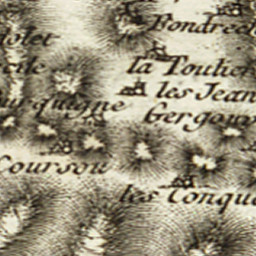 Fondrech
olet
la Toulier
les Jean
urquigne
Gergou
Coursou
les Conque